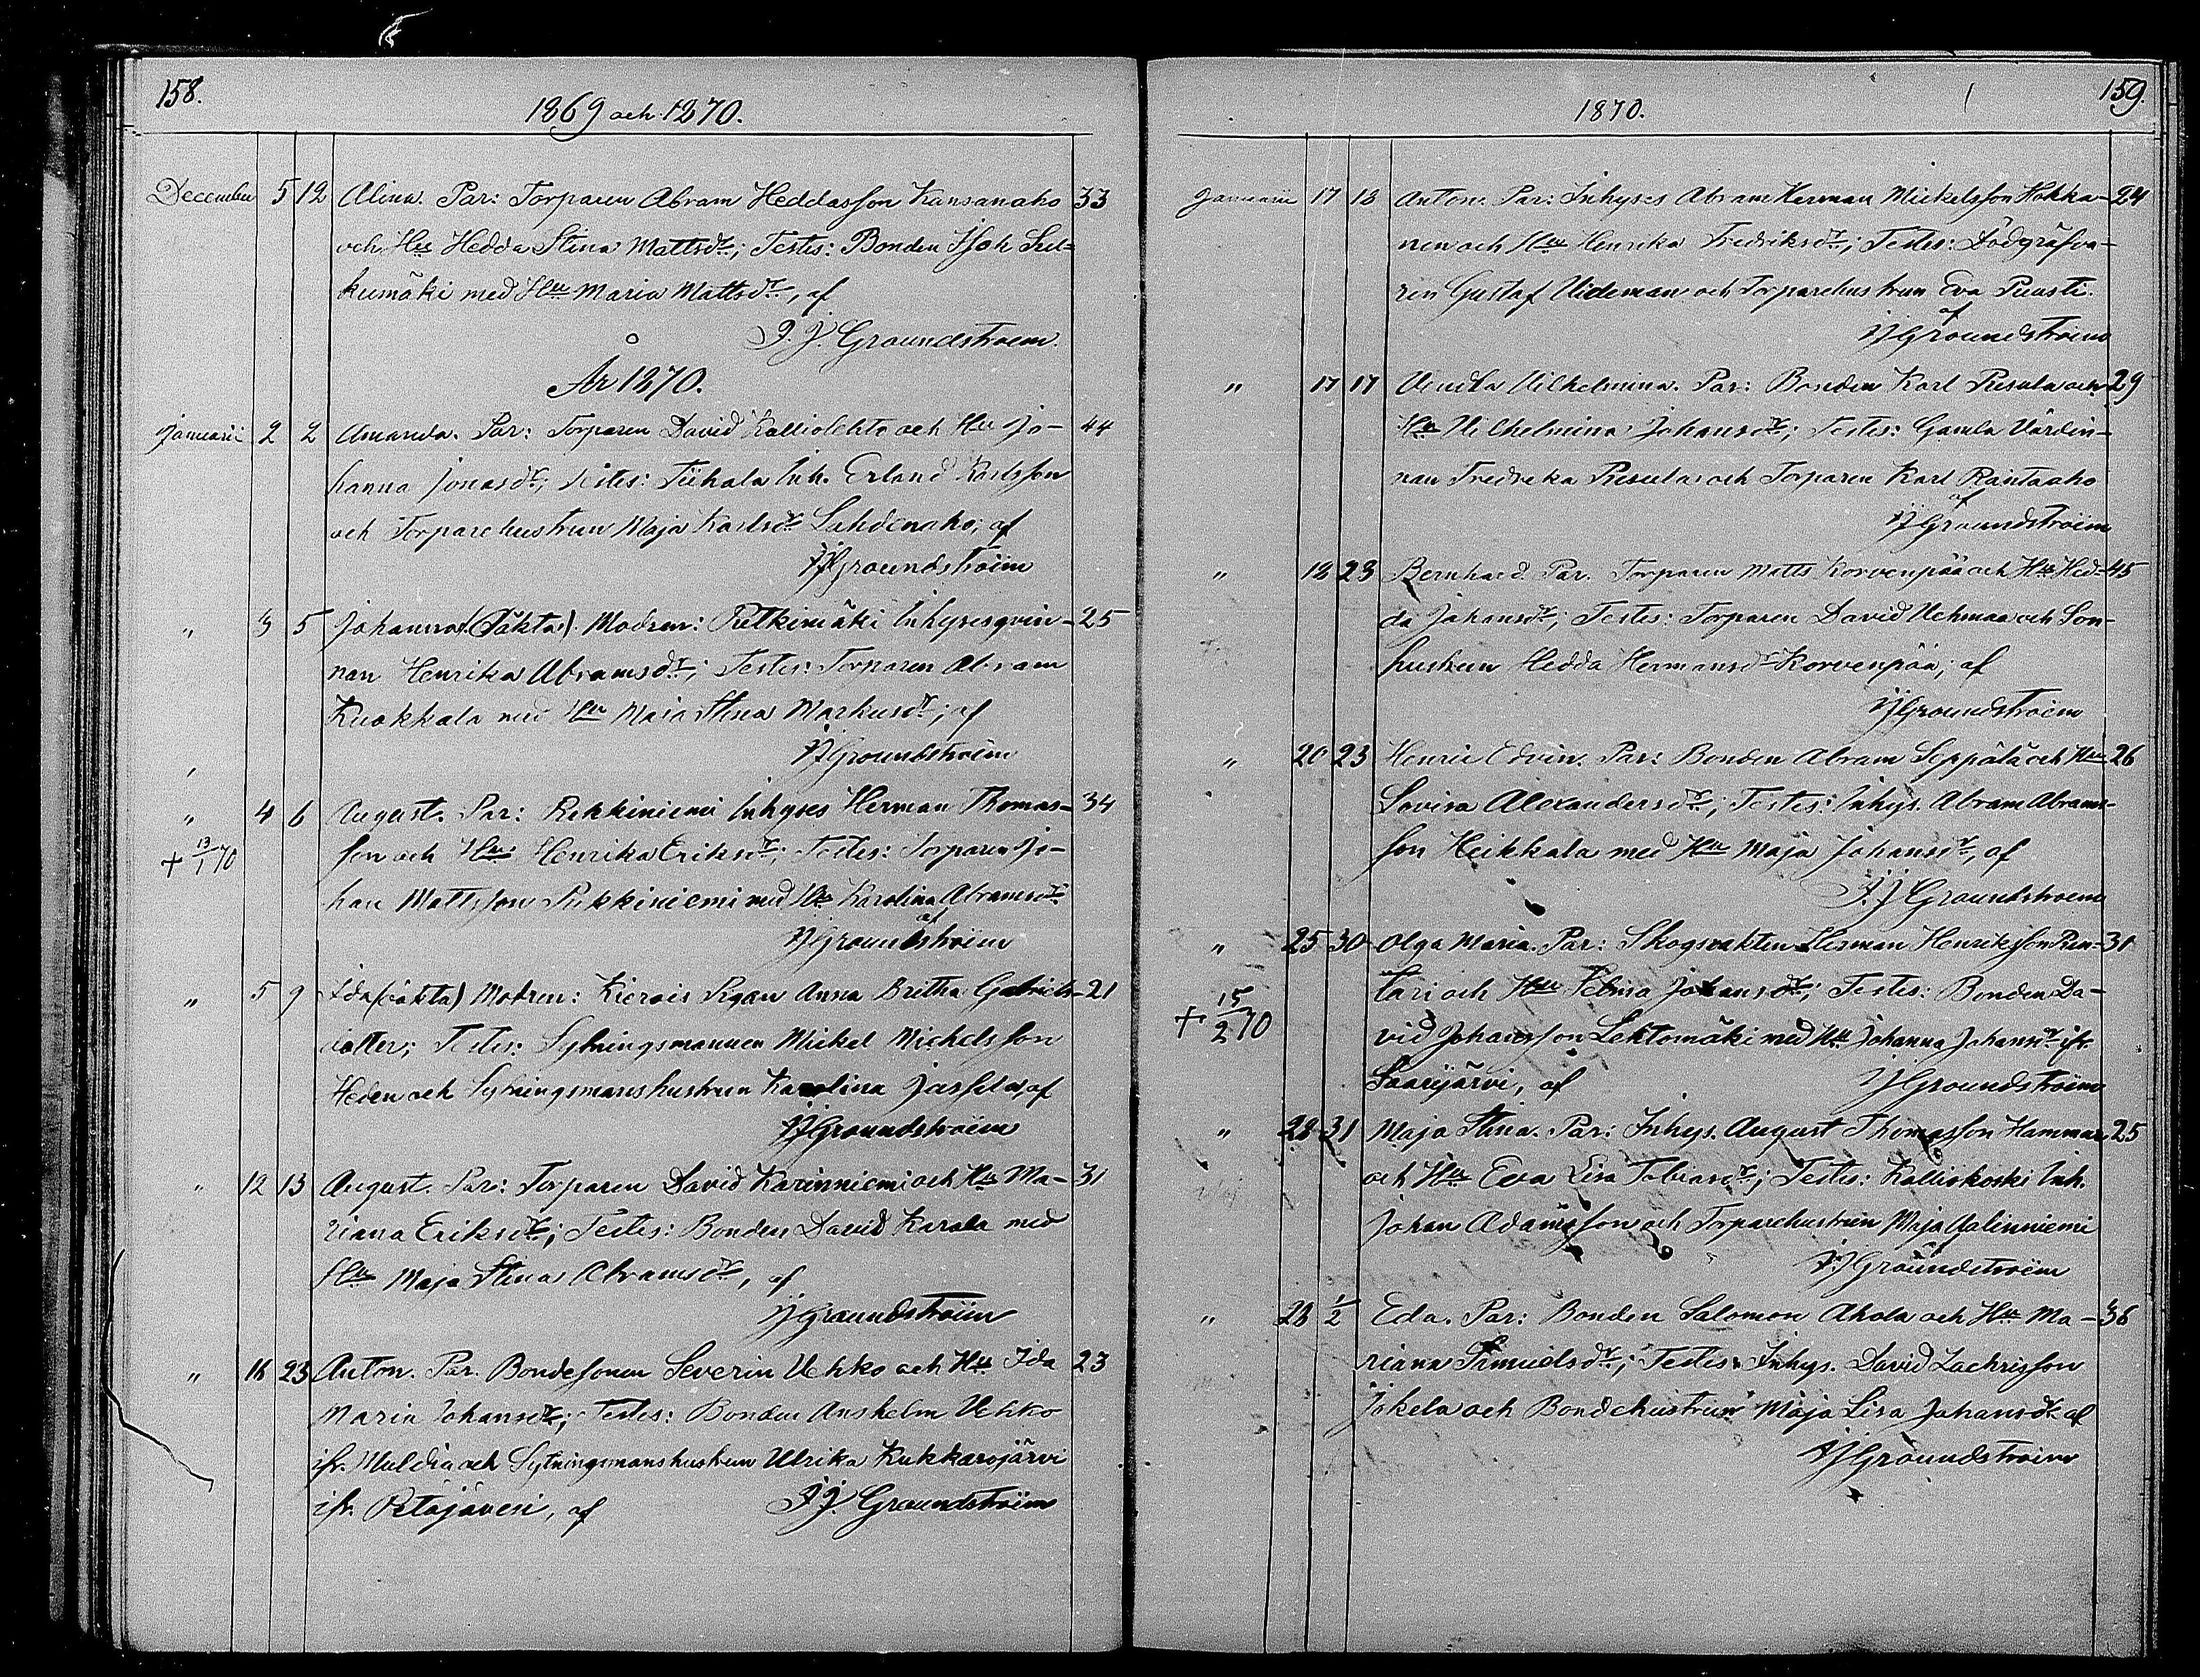 158.
1869 och 1870.
December 5 12 Alina. Par: Torparen Abram Heddasson Kansanaho 33
och Hu Hedda Stina Mattsdr; Testes: Bonden Isak Sul-
kumäki med Hu Maria Mattsdr, af
I. J. Groundstroem.
År 1870.
Januarii 2 2 Amanda. Par: Torparen David Kalliolehto och Hu Jo- 44
hanna Jonasdr; Testes: Tiihala Inh. Erland Karlsson
och Torparehustrun Maja Karlsdr Lahdenaho; af
IJGroundstroëm
" 3 5 Johanna (oäkta). Modren: Pitkämäki Inhysesqvin- 25
nan Henrika Abramsdr; Testes: Torparen Abram
Kuokkala med Hu Maja Stina Markusdr; af
IJGroundstroëm
" 4 6 August. Par: Rekkiniemi Inhyses Herman Thomas- 34
+ 13/1 70 son och Hu Henrika Eriksdr; Testes: Torparen Jo-
han Mattsson Pukkiniemi med Hu Karolina Abramsdr
af
IJGroundstroëm
" 5 9 Ida (oäkta) Modren: Pigan Anna Britha Gabriels- 21
dotter; Testes: Sytningsmannen Mickel Michelsson
Heden och Sytningsmanshustrun Karolina af
IJGroundstroëm
" 12 13 August. Par: Torparen David Karinniemi och Hu Ma- 31
riana Eriksdr; Testes: Bonden David Karala med
Hu Maja Stina Abramsdr, af
IJGroundstroëm
" 16 23 Anton. Par. Bondesonen Severin Vehko och Hu Ida 23
Maria Johansdr; Testes: Bonden Anshelm Vehko
ifr. Muldia och Sytningsmanshustrun Ulrika Kukkarojärvi
ifr. Petäjävesi, af I. J. Groundstroëm
159.
1870.
Januarii 17 18 Anton. Par: Inhyses Abram Herman Mickelsson Hokka- 24
nen och Hu Henrika Fredriksdr; Testes: Dödgräfva-
ren Gustaf Videman och Torparehustrun Eva Puusti.
af
IJGroundstroëm
" 17 17 Vendla Vilhelmina. Par: Bonden Karl Pesula och 29
Hu Vilhelmina Johansdr; Testes: Gamla Värdin-
nan Fredrika Pesula och Torparen Karl Rantaaho
af
IJGroundstroëm
" 18 23 Bernhard. Par. Torparen Matts Korvenpää och Hu Hed- 45
da Johansdr; Testes: Torparen David Vehmaa och Son-
hustrun Hedda Hermansdr Korvenpää; af
IJGroundstroëm
" 20 23 Henric Edvin. Par: Bonden Abram Seppälä och Hu 26
Lovisa Alexandersdr; Testes: Inhys. Abram Abrams-
son Heikkala med Hu Maja Johansdr, af
I. J. Groundstroem
" 25 30 Olga Maria. Par: Skogvakten Herman Henriksson Run- 31
tari och Hu Johansdr; Testes: Bonden Da-
+ 15/2 70 vid Johansson Lehtomäki med Hu Johanna Johansdr ifr.
Saarijärvi, af IJGroundstroëm
" 28 31 Maja Stina. Par: Inhys. August Thomasson Hammar 25
och Hu Eva Lisa Tobiasdr; Testes: Kalliokoski Inh.
Johan Adamsson och Torparehustrun Maja Aalinniemi
IJGroundstroëm
" 28 1/2 Eda. Par: Bonden Salomon Ahola och Hu Ma- 36
riana Samuelsdr; Testes: Inhys. David Zachrisson
Jokela och Bondehustrun Maja Lisa Johansdr af
IJGroundstroëm